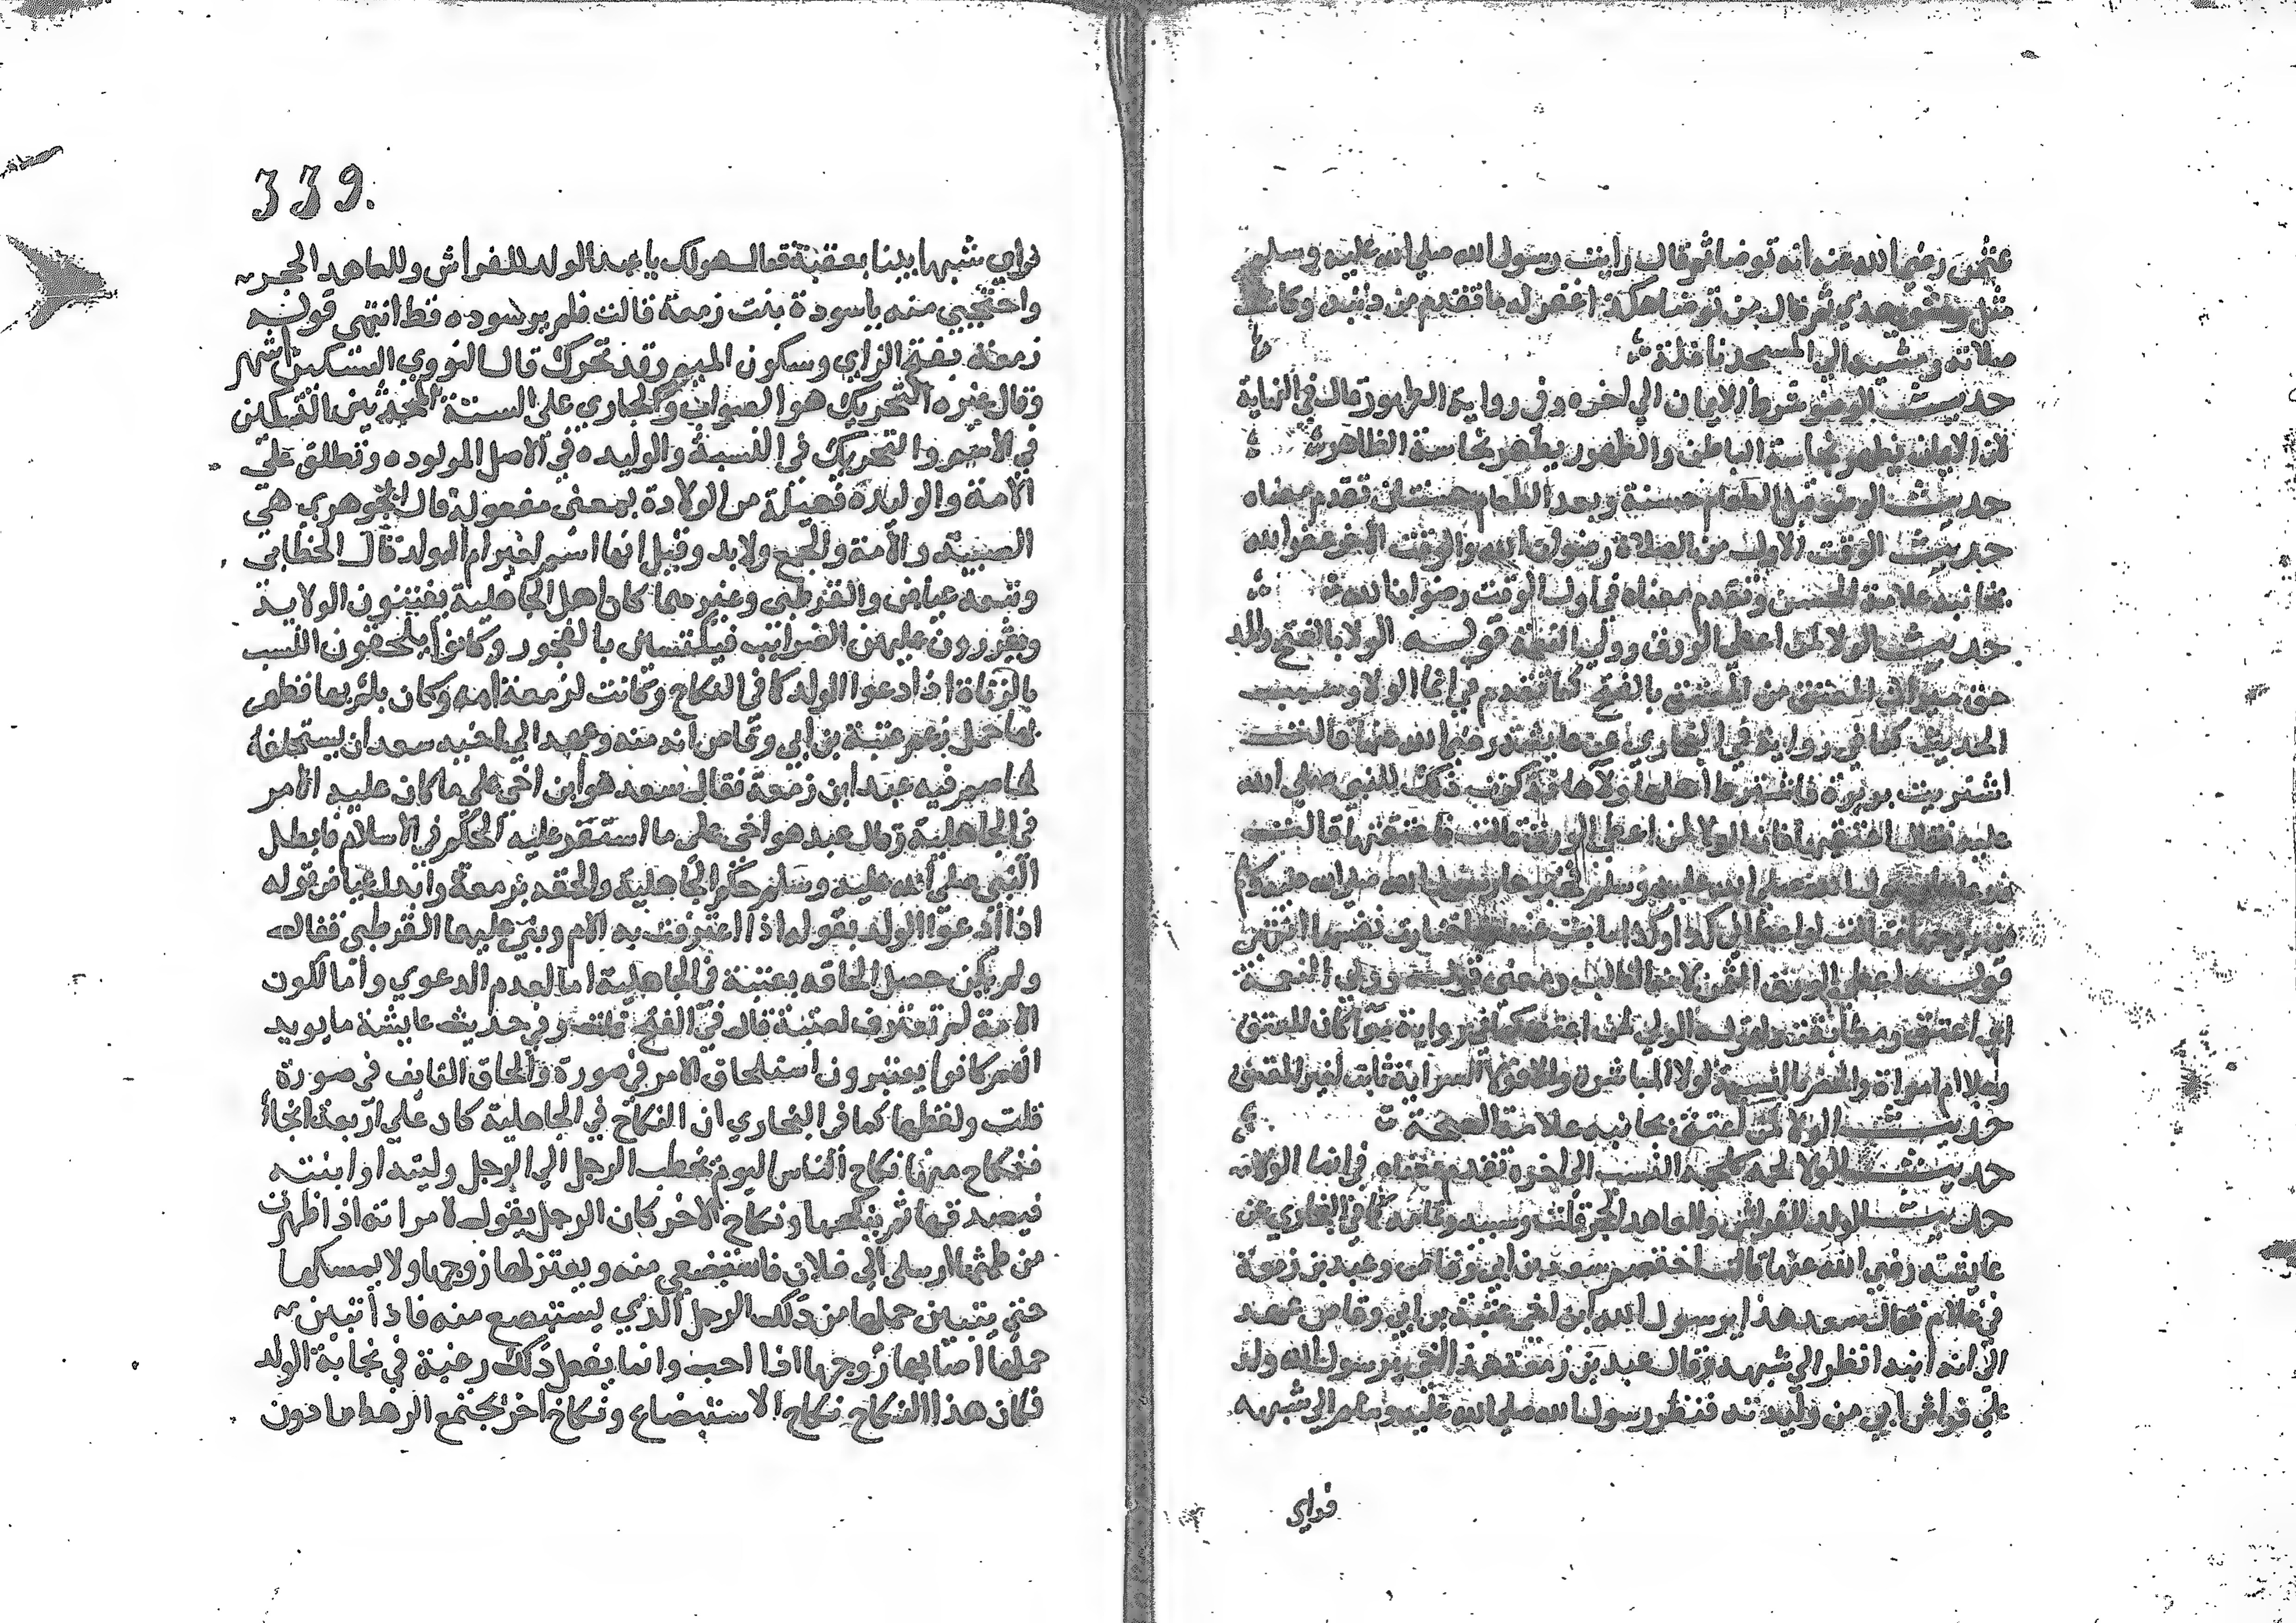 عثمن رضي الله عنه انه توضا ثم قال رايت رسول الله صلي الله عليه وسلم
مثل وضوي هذي ثم قال من توضا هكذا غفر له ما تقدم من ذنبه وكانت
صلاته ومشيه الي المسجد نافلة
حديث الوضو شرط الايمان الي اخره وفي رواية الطهور قال في النهاية
لان الايمان يطهر نجاسة الباطن والطهور يطهر نجاسة الظاهر
حديث الوضو قبل الطعام حسنة وبعد الطعام حسنتان تقدم معناه
حديث الوقت الاول من الصلاة رضوان الله والوقت الاخر عفو الله
بجانبه علامة الحسن وتقدم معناه في اول الوقت رضوان الله
حديث الولا لمن اعطي الورق وولي النعمة قوله الولا بالفتح والمد
حق ميراث المعتق من المعتق بالفتح كما تقدم في انما الولا وسبب
الحديث كما في رواية في البخاري عن عايشة رضي الله عنها قالت
اشتريت بريرة فاشترط اهلها ولاها فذكرت ذلك للنبي صلي الله
عليه فقال اعتقيها فان الولا لمن اعطي الورق قالت فاعتقتها قالت
فدعاها رسول الله صلي الله عليه وسلم فخيرها رسول الله صلي الله عليه وسلم
من زوجها فقالت لو اعطاني كذا وكذا ما بت عنده فاختارت نفسها انتهي
قوله اعطي الورق الثمن لانه الغالب ومعني قوله وولي النعمة
اي اعتق ومطابقته لقوله الولي لمن اعتق
حديث الولا لمن اعتق بجانبه علامة الصحة
حديث الولا لحمة كلحمة النسب الي اخره تقدم معناه في انما الولا
حديث الولد للفراش وللعاهر الحجر قلت وسببه وتمامه كما في البخاري عن
عايشة رضي الله عنها قالت اختصم سعد بن ابي وقاص وعبد بن زمعة
في غلام فقال سعد هذا يرسول الله ابن اخي عتبة بن ابي وقاص عهد
الي انه ابنه انظر الي شبهه وقال عبد بن زمعة هذا اخي يرسول الله ولد
علي فراش ابي من وليدته فنظر رسول الله صلي الله عليه وسلم الي شبهه
فراي
339.
فراي شبها بينا بعتبة فقال هو لك يا عبد الولد للفراش وللعاهر الحجر
واحتجبي منه ياسودة بنت زمعة قالت فلم ير سوده قط انتهي قوله
زمعة بفتح الزاي وسكون الميم وقد تحرك قال النووي التسكين اشهر
وقال غيره التحريك هو الصواب والجاري علي السنة المحدثين التسكين
في الاسم والتحريك في النسبة والوليده في الاصل المولوده وتطلق علي
الامة والوليدة فعيلة من الولادة بمعني مفعولة قال الجوهري هي
الصبية والامة والجمع ولايد وقيل انها اسم لغير ام الولد قال الخطابي
وتبعه عياض والقرطبي وغيرهما كان اهل الجاهلية يقتنون الولايد
ويقررون عليهن الضرايب فيكتسبن بالفجور وكانوا يلحقون النسب
بالزناة اذا ادعوا الولد كما في النكاح وكانت لزمعة امة وكان يلم بها فظهر
بها حمل زعم عتبة بن ابي وقاص انه منه وعهد الي اخيه سعد ان يستلحقه
فخاصم فيه عبد ابن زمعة فقال سعد هو ابن اخي علي ما كان عليه الامر
في الجاهلية وقال عبد هو اخي علي ما استقر عليه الحكم في الاسلام فابطل
النبي صلي الله عليه وسلم حكم الجاهلية والحقه بزمعة وابدل عياض قوله
اذا ادعوا الولد بقوله اذا اعترفت به الام وبني عليها القرطبي فقال
ولم يكن حصل الحاقه بعتبة في الجاهلية اما لعدم الدعوي واما لكون
الامة لم تعترف لعتبة قال في الفتح قلت وفي حديث عايشة ما يويد
انهم كانوا يعتبرون استلحاق الام في صورة والحاق القايف في صورة
قلت ولفظها كما في البخاري ان النكاح في الجاهلية كان علي اربعة انحا
فنكاح منها نكاح الناس اليوم يخطب الرجل الي الرجل وليته او ابنته
فيصدقها ثم ينكحها ونكاح الاخر كان الرجل يقول لامراته اذا طهرت
من طمثها ارسلي الي فلان فاستبضعي منه ويعتزلها زوجها ولا يمسكها
حتي يتبين حملها من ذلك الرجل الذي يستبضع منه فاذا تبين
حملها اصابها زوجها اذا احب وانما يفعل ذلك رغبة في نجابة الولد
فكان هذا النكاح نكاح الاستبضاع ونكاح اخر يجتمع الرهط ما دون